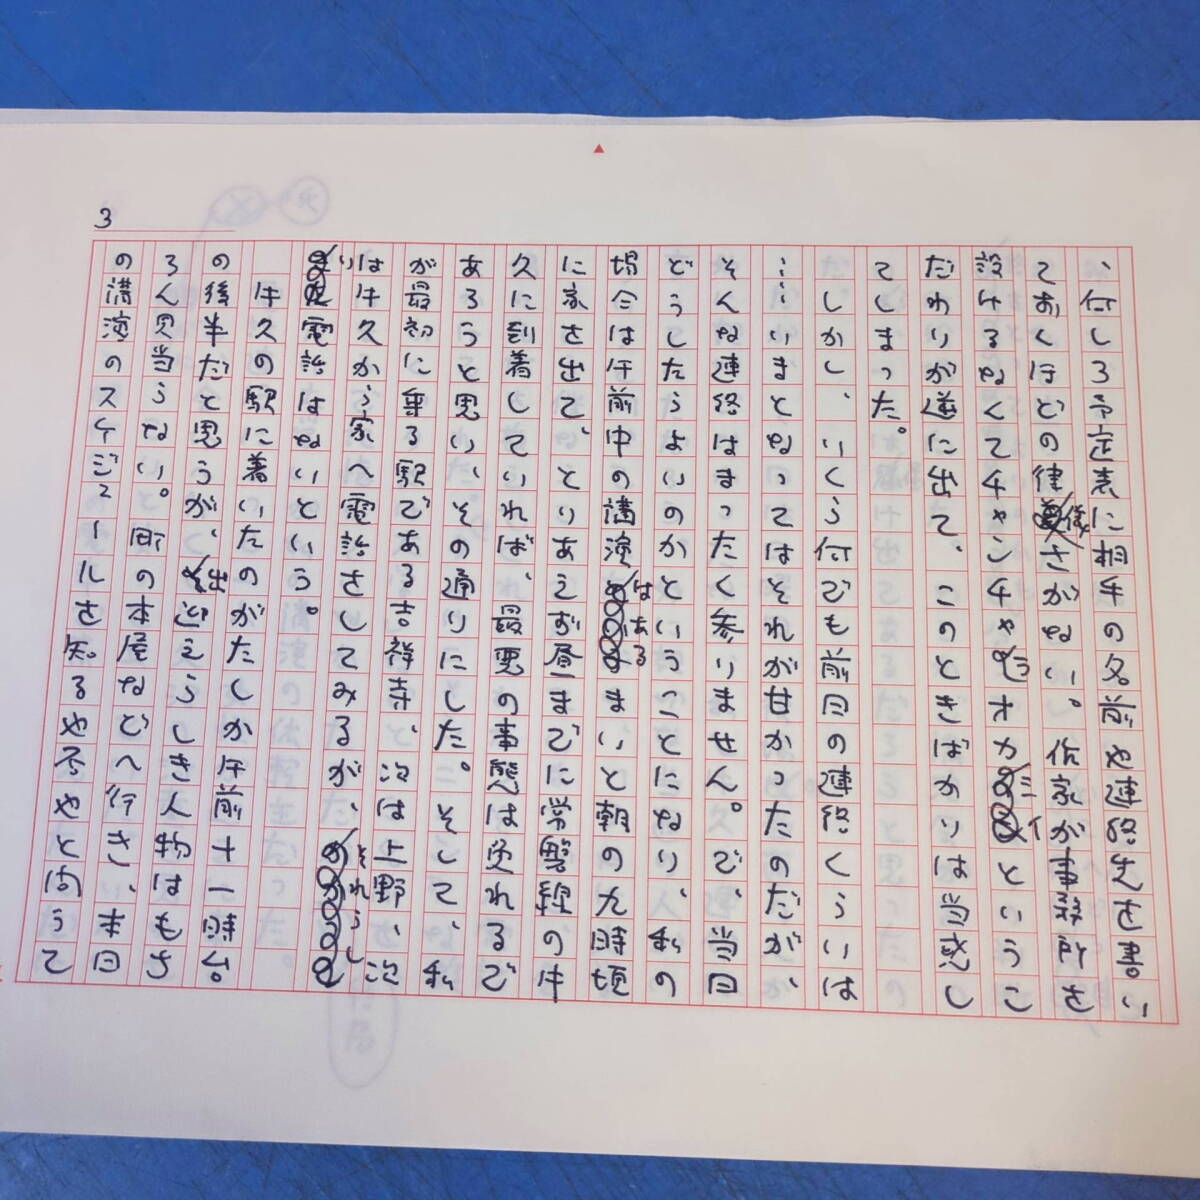 3
、何しろ予定表に相手の名前や連絡先を書い
ておくほどの律儀さがない。作家が事務所を
設けるなくてチャンチャラオカシイというこ
だわりが逆に出て、このときばかりは当惑し
てしまった。
しかし、いくら何でも前日の連絡くらいは
……いまとなってはそれが甘かったのだが、
そんな連絡はまったく参りません。で、当日
どうしたらよいのかということになり、私の
場合は午前中の講演はあるまいと朝の九時頃
に家を出て、とりあえず昼までに常磐線の牛
久に到着していれば、最悪の事態は免れるで
あろうと思い、その通りにした。そして、私
が最初に乗る駅である吉祥寺と、次は上野、次
は牛久から家へ電話をしてみるが、それらし
り電話はないという。
牛久の駅に着いたのがたしか午前十一時台
の後半だと思うが、出迎えらしき人物はもち
ろん見当らない。駅の本屋などへ行き、本日
の講演のスケジュールを知るや否やと問うて